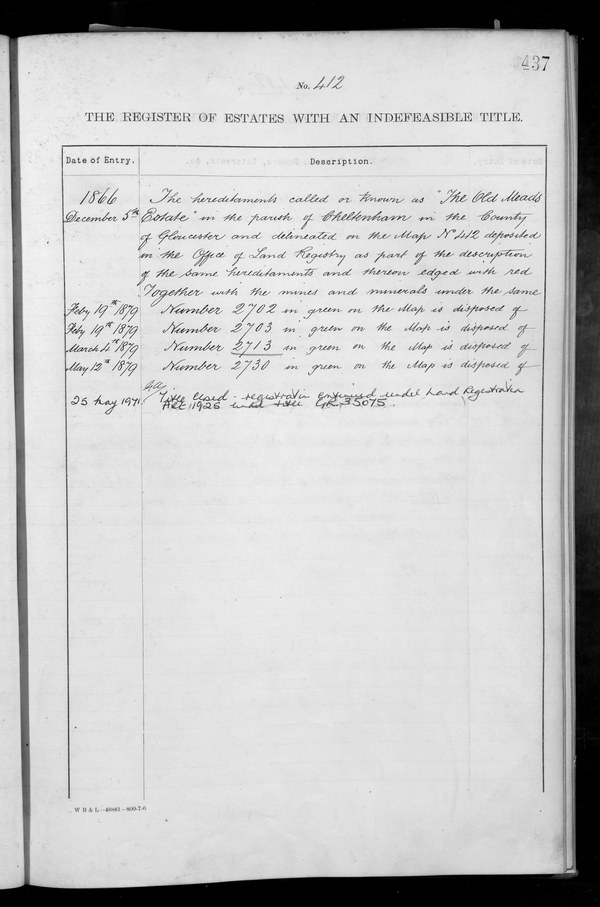 437
No. 412
THE REGISTER OF ESTATES WITH AN INDEFEASIBLE TITLE.
Date of Entry. Description.
1866 The hereditaments called or known as "The Old Meads
December 5th Estate" in the parish of Cheltenham in the County
of Gloucester and delineated on the Map No 412 deposited
in the Office of Land Registry as part of the description
of the same hereditaments and thereon edged with red
Together with the mines and minerals under the same
Feby 19th 1879 Number 2702 in green on the Map is disposed of
Feby 19th 1879 Number 2703 in green on the Map is disposed of
March 4th 1879 Number 2713 in green on the Map is disposed of
May 12th 1879 Number 2730 in green on the Map is disposed of
25 May 1971 Title closed - registration continued under Land Registration
Act 1925 under title GR 35075.
W B & L—46881—800-7-6